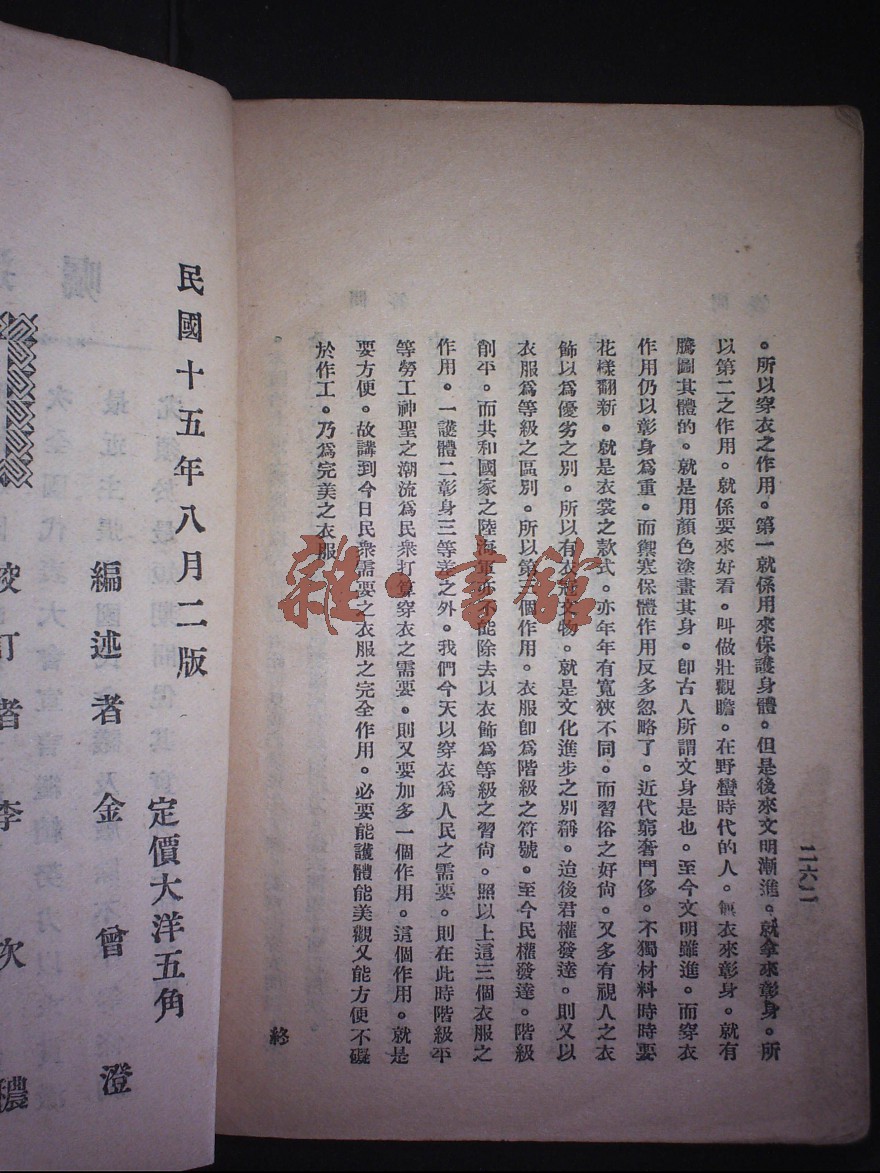 二六二
。所以穿衣之作用。第一就係用來保護身體。但是後來文明漸進。就拿來彰身。所
以第二之作用。就係要來好看。叫做壯觀瞻。在野蠻時代的人。無衣來彰身。就有
騰圖其體的。就是用顏色塗畫其身。即古人所謂文身是也。至今文明雖進。而穿衣
作用仍以彰身爲重。而禦寒保體作用反多忽略了。近代窮奢鬥侈。不獨材料時時要
花樣翻新。就是衣裳之款式。亦年年有寬狹不同。而習俗之好尙。又多有視人之衣
飾以爲優劣之別。所以有衣冠文物。就是文化進步之別稱。迨後君權發達。則又以
衣服爲等級之區別。所以第三個作用。衣服卽爲階級之符號。至今民權發達。階級
削平。而共和國家之陸海軍亦不能除去以衣飾爲等級之習尙。照以上這三個衣服之
作用。一護體二彰身三等差之外。我們今天以穿衣爲人民之需要。則在此時階級平
等勞工神聖之潮流爲民衆打算穿衣之需要。則又要加多一個作用。這個作用。就是
要方便。故講到今日民衆需要之衣服之完全作用。必要能護體能美觀又能方便不礙
於作工。乃爲完美之衣服
終
雜·書館
民國十五年八月二版
定價大洋五角
編述者 金曾澄
校訂者 李次